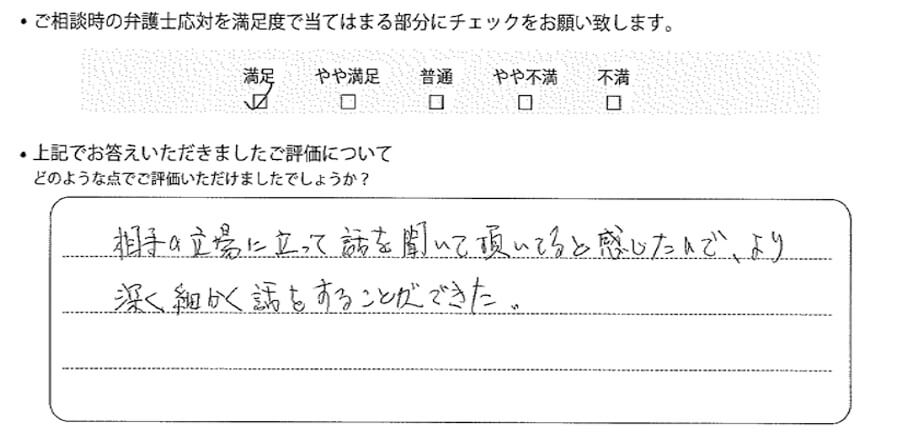 ・ご相談時の弁護士応対を満足度で当てはまる部分にチェックをお願い致します。
満足 やや満足 普通 やや不満 不満
☑ □ □ □ □
・上記でお答えいただきましたご評価について
どのような点でご評価いただけましたでしょうか?
相手の立場に立って話を聞いて頂いてると感じたので、より
深く細かく話をすることができた。